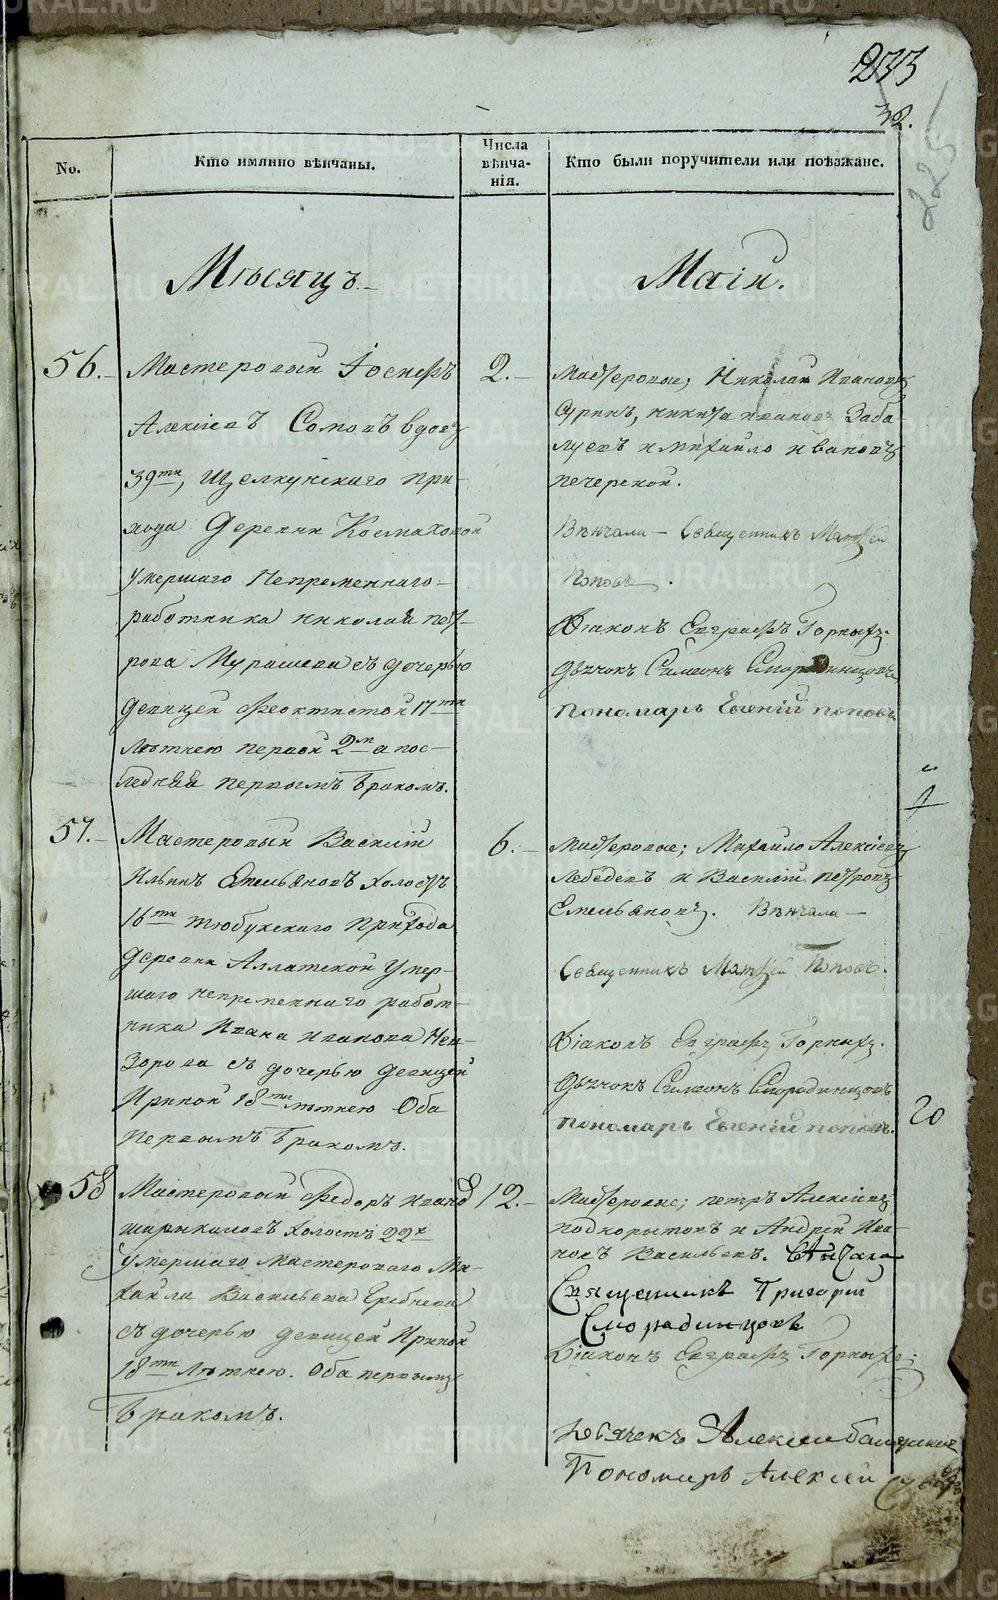 233
32.
225
No.
Кто имянно вѣнчаны.
Числа вѣнча-
нія.
Кто были поручители или поѣзжане.
Мѣсяцъ
Маій.
56.
Мастеровый Іосифъ
Алексіевъ Сомовъ вдовъ
39ти, Щелкунскаго при-
хода Деревни Космаковой
умершаго Непременнаго
работника Николая пет-
рова Мурашева съ дочерью
девицей Феоктистой 17ти
лѣтнею первой 2м а пос-
ледняя первымъ бракомъ.
2.
Мастеровые; Николай Ивановъ
Суринъ, никита ивановъ Заба-
луевъ и михайло ивановъ
печерской.
Вѣнчали – Священникъ Матфей
Поповъ.
Діаконъ Евграфъ Горныхъ.
Дьячокъ Симеонъ Смородинцовъ
пономарь Евгеній поповъ
57.
Мастеровый Василій
Ильинъ Емельяновъ холостъ
16ти тюбукскаго прихода
Деревни Аллатской умер-
шаго непременнаго работ-
ника Ивана иванова Нев-
зорова съ дочерью девицей
Ириной 18ти лѣтнею Оба
первымъ бракомъ.
6.
Мастеровые; Михайло Алексіевъ
Лебедевъ и Василій петровъ
Емельяновъ. Вѣнчали –
Священникъ Матфей Поповъ.
Діаконъ Евграфъ Горныхъ.
Дьячокъ Симеонъ Смородинцовъ
пономарь Евгеній поповъ.
20
58
Мастеровый Федоръ иванов
ширыкаловъ холостъ 22х
умершаго мастероваго Ми-
хаила Васильева Еребнева
съ дочерью девицей Ириной
18ти лѣтнею. Оба первымъ
бракомъ.
12.
Мастеровые; петръ Алексіевъ
подкорытовъ и Андрей Ива-
новъ Васильевъ. Вѣнчали
Священникъ Григорій
Смородинцовъ
Діаконъ Евграфъ Горныхъ;
Дьячекъ Алексѣй
Пономарь Алексій